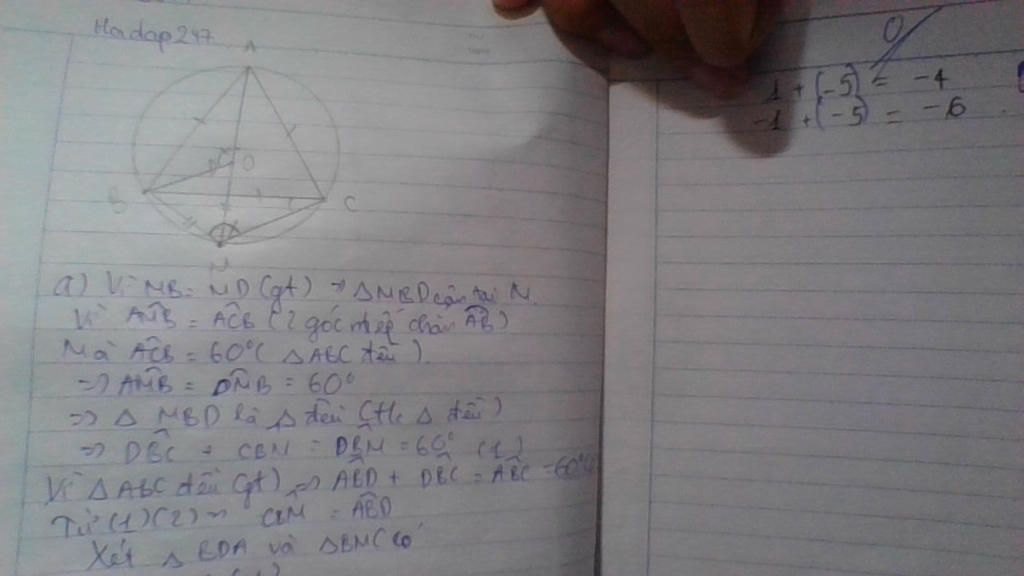 Hoidap247
A
O
B
C
M
a) Vì MB = MD (gt) → ΔMBD cân tại M.
Vì AMB = ACB (2 góc nt chắn AB)
Mà ACB = 60° (ΔABC đều)
=> AMB = DMB = 60°
=> Δ MBD là Δ đều (Δ đều)
=> DBC + CBM = DBM = 60° (1)
Vì ΔABC đều (gt) => ABD + DBC = ABC = 60°
Từ (1)(2) => CBM = ABD
Xét Δ BDA và ΔBMC có
0
1 + (-5) = -4
-1 + (-5) = -6